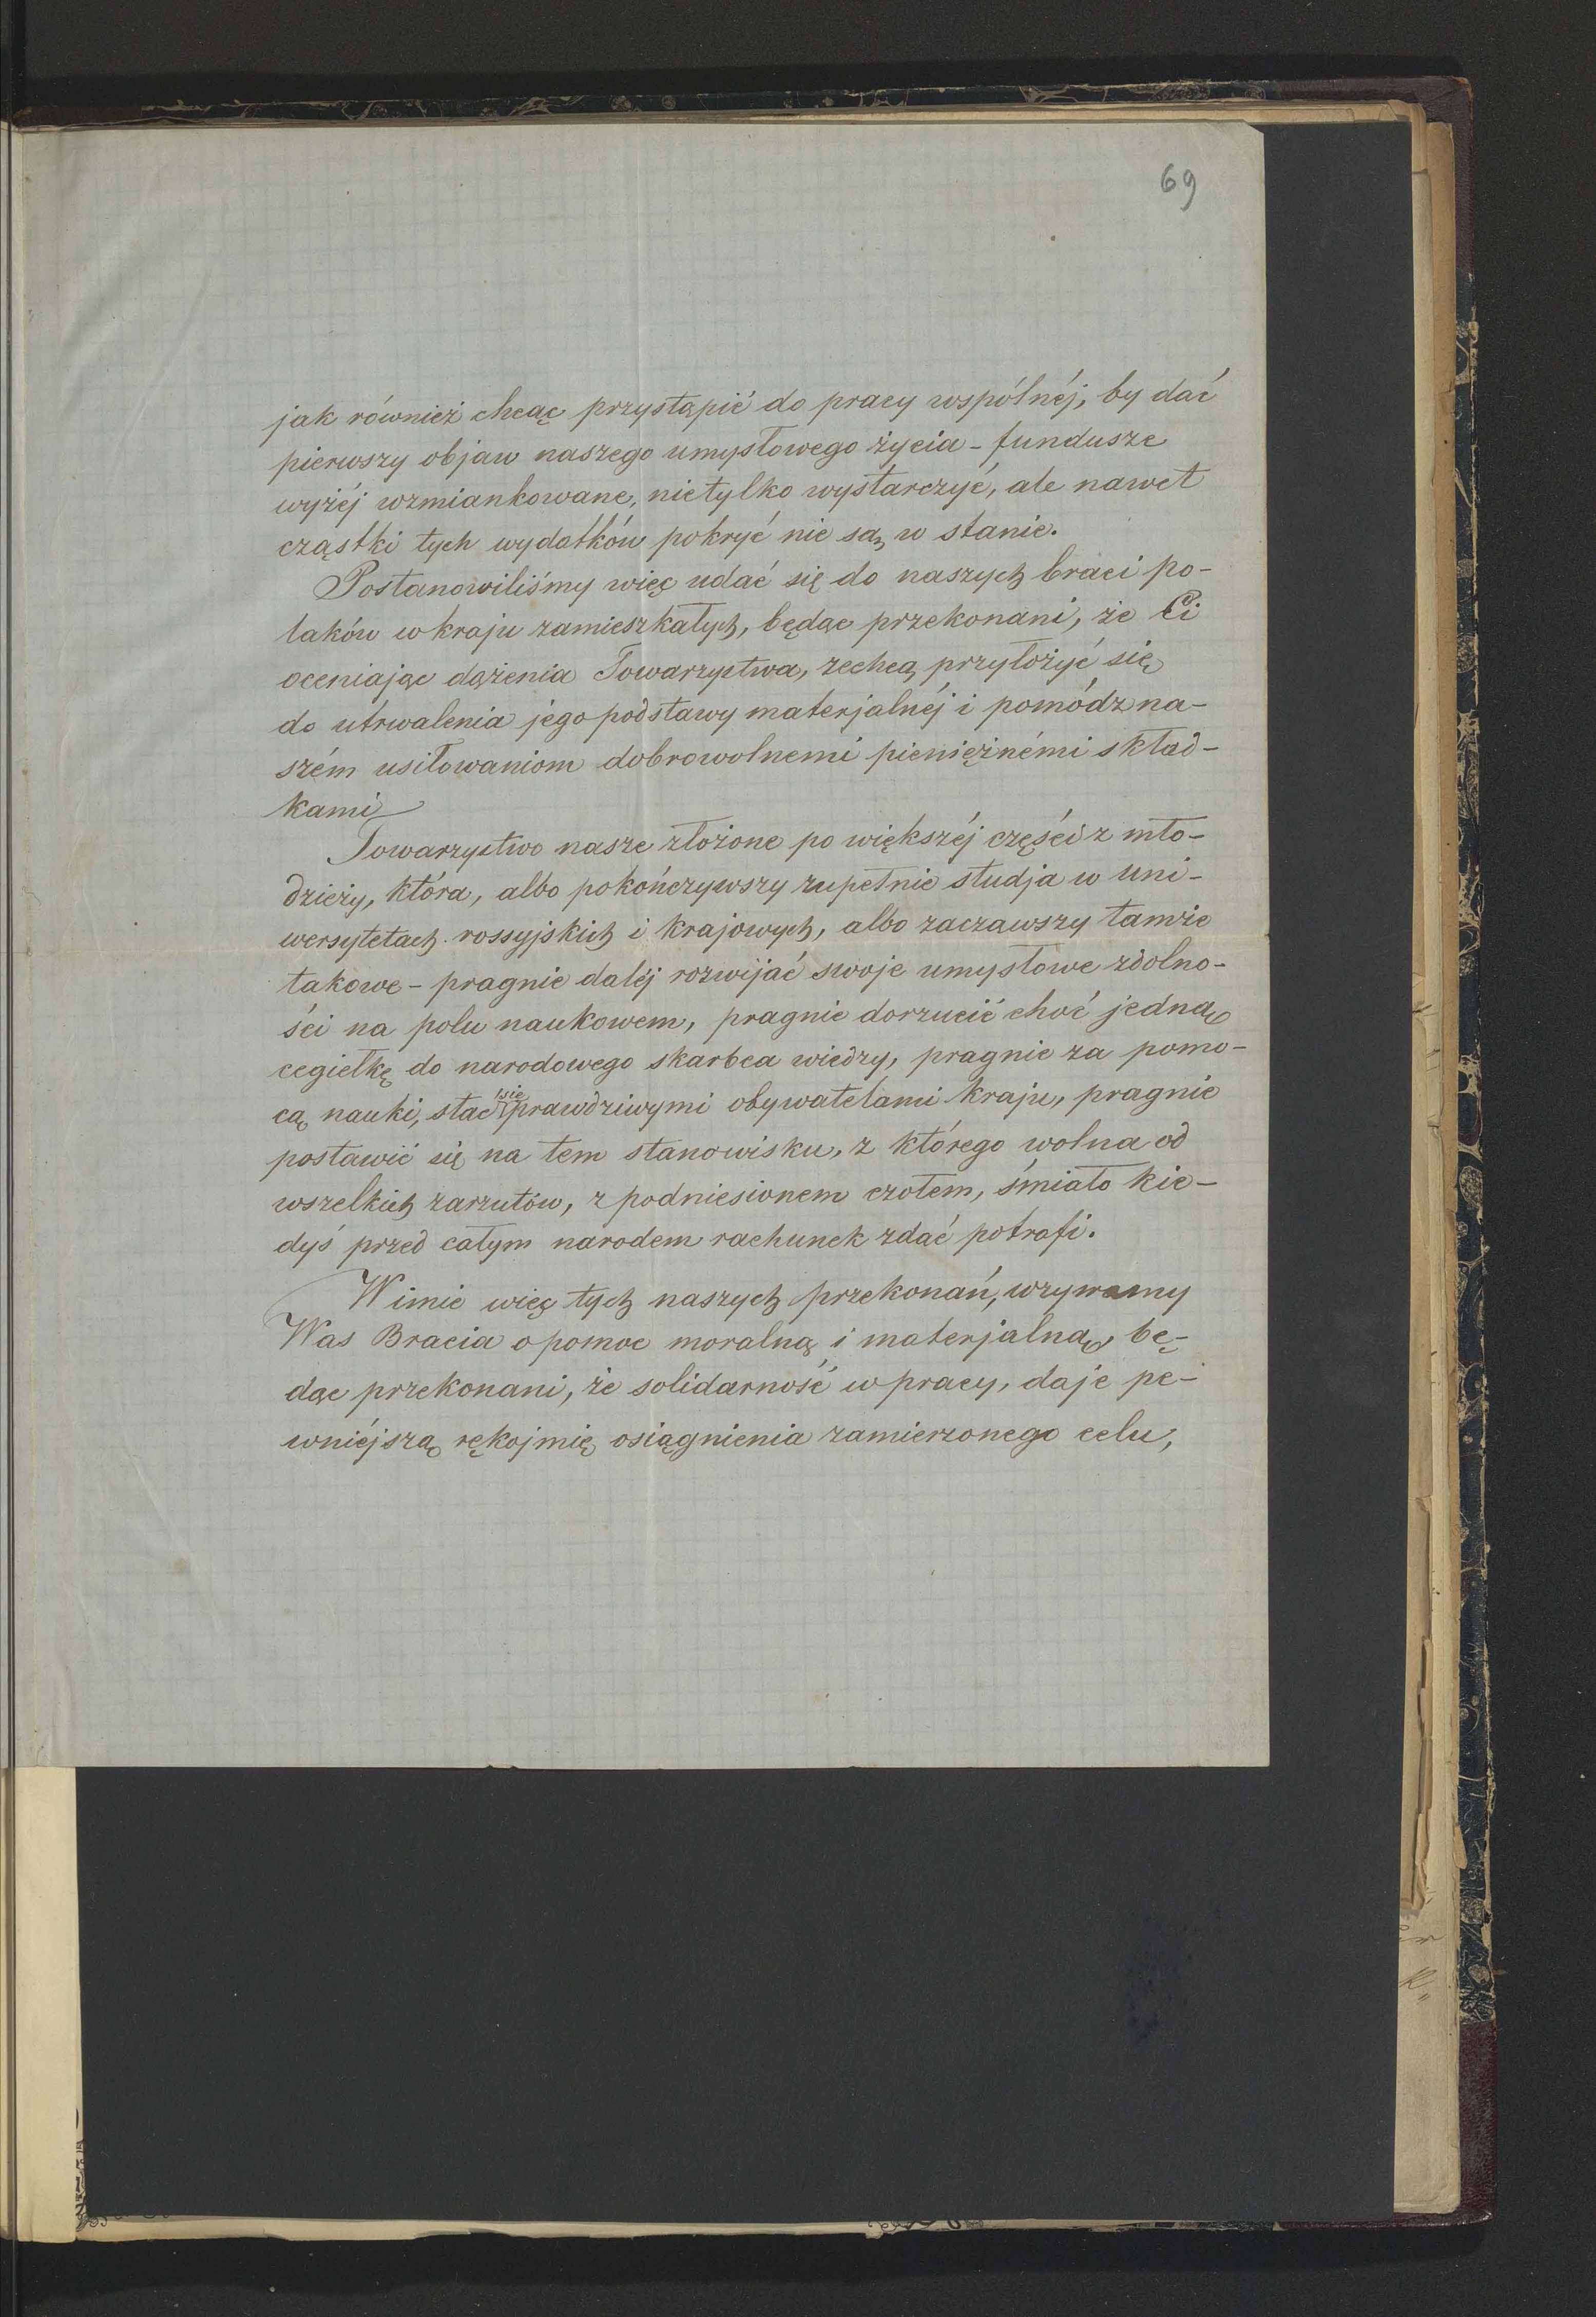 69
jak również chcąc przystąpić do pracy wspólnéj, by dać
pierwszy objaw naszego umysłowego życia - fundusze
wyżéj wzmiankowane, nietylko wystarczyć, ale nawet
cząstki tych wydatków pokryć nie są w stanie.
Postanowiliśmy więc udać się do naszych braci po-
laków w kraju zamieszkałych, będąc przekonani, że Ci
oceniając dążenia Towarzystwa, zechcą przyłożyć się
do utrwalenia jego podstawy materjalnéj i pomódz na-
szém usiłowaniom dobrowolnemi pieniężnémi skład-
kami
Towarzystwo nasze złożone po większéj części z mło-
dzieży, która, albo pokończywszy zupełnie studja w uni-
wersytetach rossyjskich i krajowych, albo zacząwszy tamże
takowe - pragnie daléj rozwijać swoje umysłowe zdolno-
ści na polu naukowem, pragnie dorzucić choć jedną
cegiełkę do narodowego skarbca wiedzy, pragnie za pomo-
cą nauki, stać się prawdziwymi obywatelami kraju, pragnie
postawić się na tem stanowisku, z którego wolna od
wszelkich zarzutów, z podniesionem czołem, śmiało kie-
dyś przed całym narodem rachunek zdać potrafi.
W imie więc tych naszych przekonań, wzywamy
Was Bracia o pomoc moralną i materjalną, bę-
dąc przekonani, że solidarność w pracy, daje pe-
wniéjszą rękojmię osiągnienia zamierzonego celu,